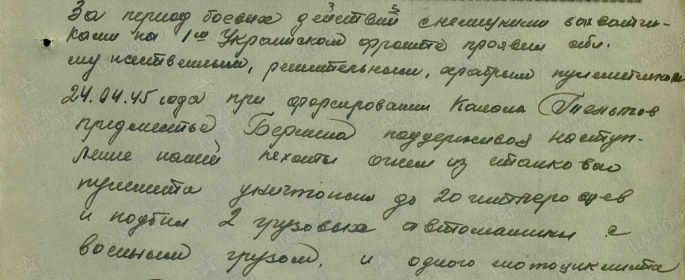 За период боевых действий с немецкими захватчи-
ками на 1ом Украинском фронте проявил себя
мужественным, решительным, храбрым пулеметчиком
24.04.45 года при форсировании Канала Тельтов
предместье Берлина поддерживая наступ-
ление нашей пехоты огнем из станкового
пулемета уничтожил до 20 гитлеровцев
и подбил 2 грузовых автомашины с
военным грузом, и одного мотоциклиста